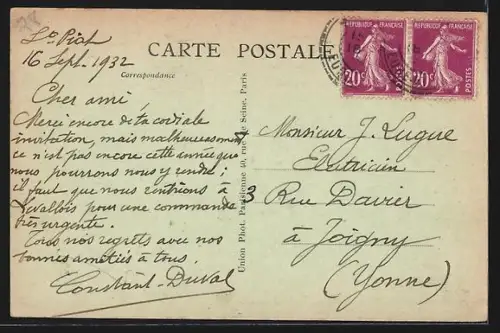 78
St Priat
16 Sept. 1932
CARTE POSTALE
Correspondance
Cher ami
Merci encore de ta cordiale
invitation, mais malheureusement
ce n'est pas encore cette année que
nous pourrons nous y rendre;
il faut que nous rentrions à
Levallois pour une commande
très urgente.
Tous nos regrets avec nos
bonnes amitiés à tous.
Constant-Duval
Union Phot. Parisienne 40, rue de Seine, Paris
REPUBLIQUE FRANÇAISE
20c
POSTES
REPUBLIQUE FRANÇAISE
20c
POSTES
Monsieur J. Lugue
Electricien
3 Rue Davier
à Joigny
(Yonne)